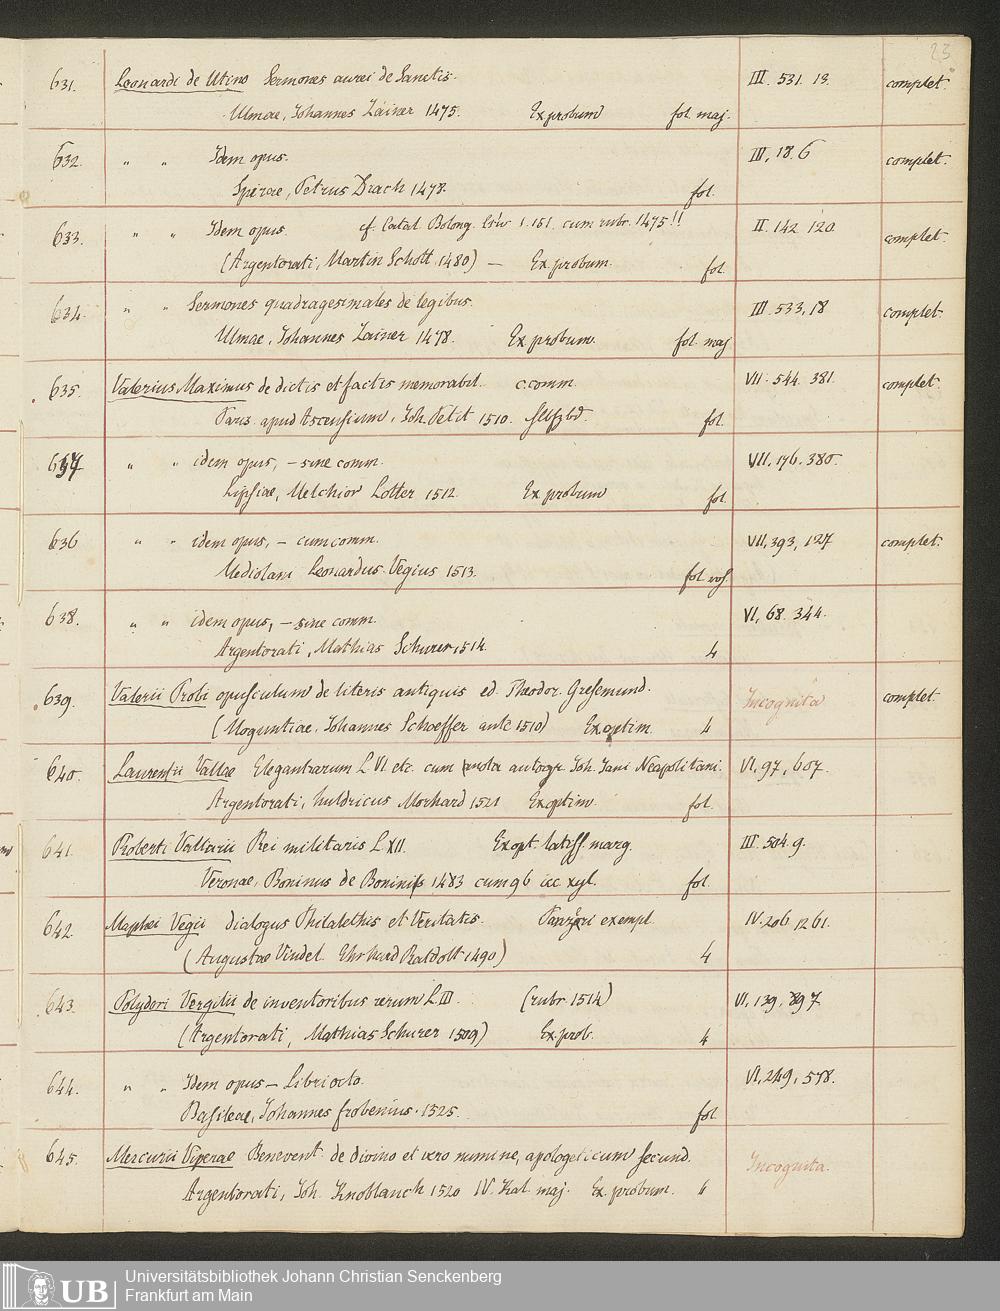 23
631. Leonardi de Utino Sermones aurei de Sanctis. III. 531. 13. complet.
Ulmae, Johannes Zainer 1475. Ex probum fol. maj.
632. " " Idem opus. III, 18. 6 complet.
Spirae, Petrus Drach 1478. fol.
633. " " Idem opus. cf. Catal. Bolong. 1.151. cum rubr. 1475!! II. 142 120 complet.
(Argentorati, Martin Schott. 1480) — Ex. probum. fol.
634. " " Sermones quadragesimales de legibus. III. 533, 18 complet.
Ulmae, Johannes Zainer 1478. Ex probum. fol. maj
635. Valerius Maximus de dictis et factis memorabil. c. comm. VII. 544. 381. complet.
Paris. apud Ascensium, Joh. Petit 1510. fol.
637 " " idem opus, – sine comm. VII, 176. 380.
Lipsiae, Melchior Lotter 1512. Ex probum fol.
636 " " idem opus, – cum comm. VII, 393, 127 complet.
Mediolani Leonardus Vegius 1513. fol.
638. " " idem opus, – sine comm. VI, 68. 344.
Argentorati, Mathias Schurer 1514. 4
639. Valerii Probi opusculum de literis antiquis ed. Theodor. Gresemund. Incognita complet.
(Moguntiae, Johannes Schoeffer ante 1510) Ex optim. 4
640. Laurentii Vallae Elegantiarum L. VI. etc. cum nota autogr. Joh. Jani Neapolitani. VI, 97, 607.
Argentorati, Huldricus Morhard 1521 Ex optim. fol.
641. Roberti Valturii Rei militaris L. XII. Ex opt. latiss. marg. III. 504. 9.
Veronae, Boninus de Boninis 1483 cum 96 icc xyl. fol.
642. Maphei Vegii dialogus Philalethis et Veritatis. Panzeri exempl. IV. 206. 1261.
(Augustae Vindel. Ehrhard Ratdolt 1490) 4
643. Polydori Vergilii de inventoribus rerum L. III. (rubr. 1514) VI, 139, 897
(Argentorati, Mathias Schurer 1509) Ex. prob. 4
644. " " Idem opus – Libri octo. VI, 249, 578.
Basileae, Johannes Frobenius. 1525. fol.
645. Mercurii Viperae Benevent. de divino et vero numine, apologeticum secund. Incognita.
Argentorati, Joh. Knoblauch 1520 IV. Kal. maj. Ex. probum. "
UB
Universitätsbibliothek Johann Christian Senckenberg
Frankfurt am Main